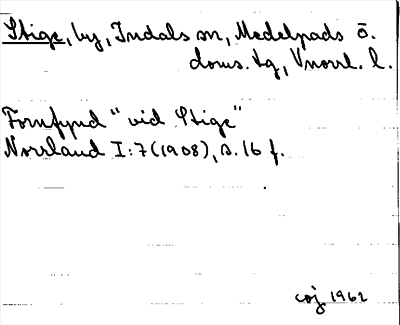 Stige, by, Indals sn, Medelpads ö.
doms. tg, Vnorrl. l.
Fornfynd "vid Stige"
Norrland I:7 (1908), s. 16 f.
coj 1962